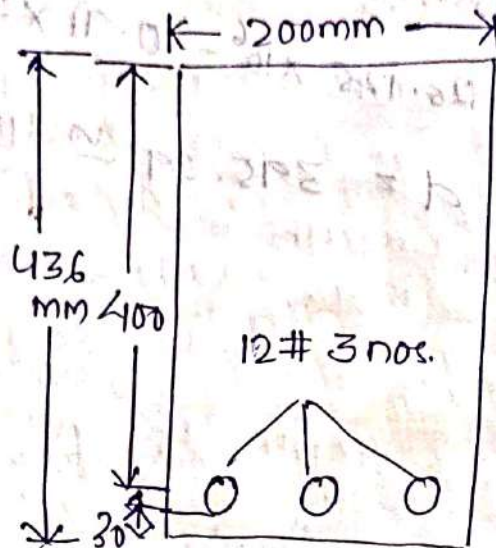 200mm
436
mm
400
12# 3 nos.
30